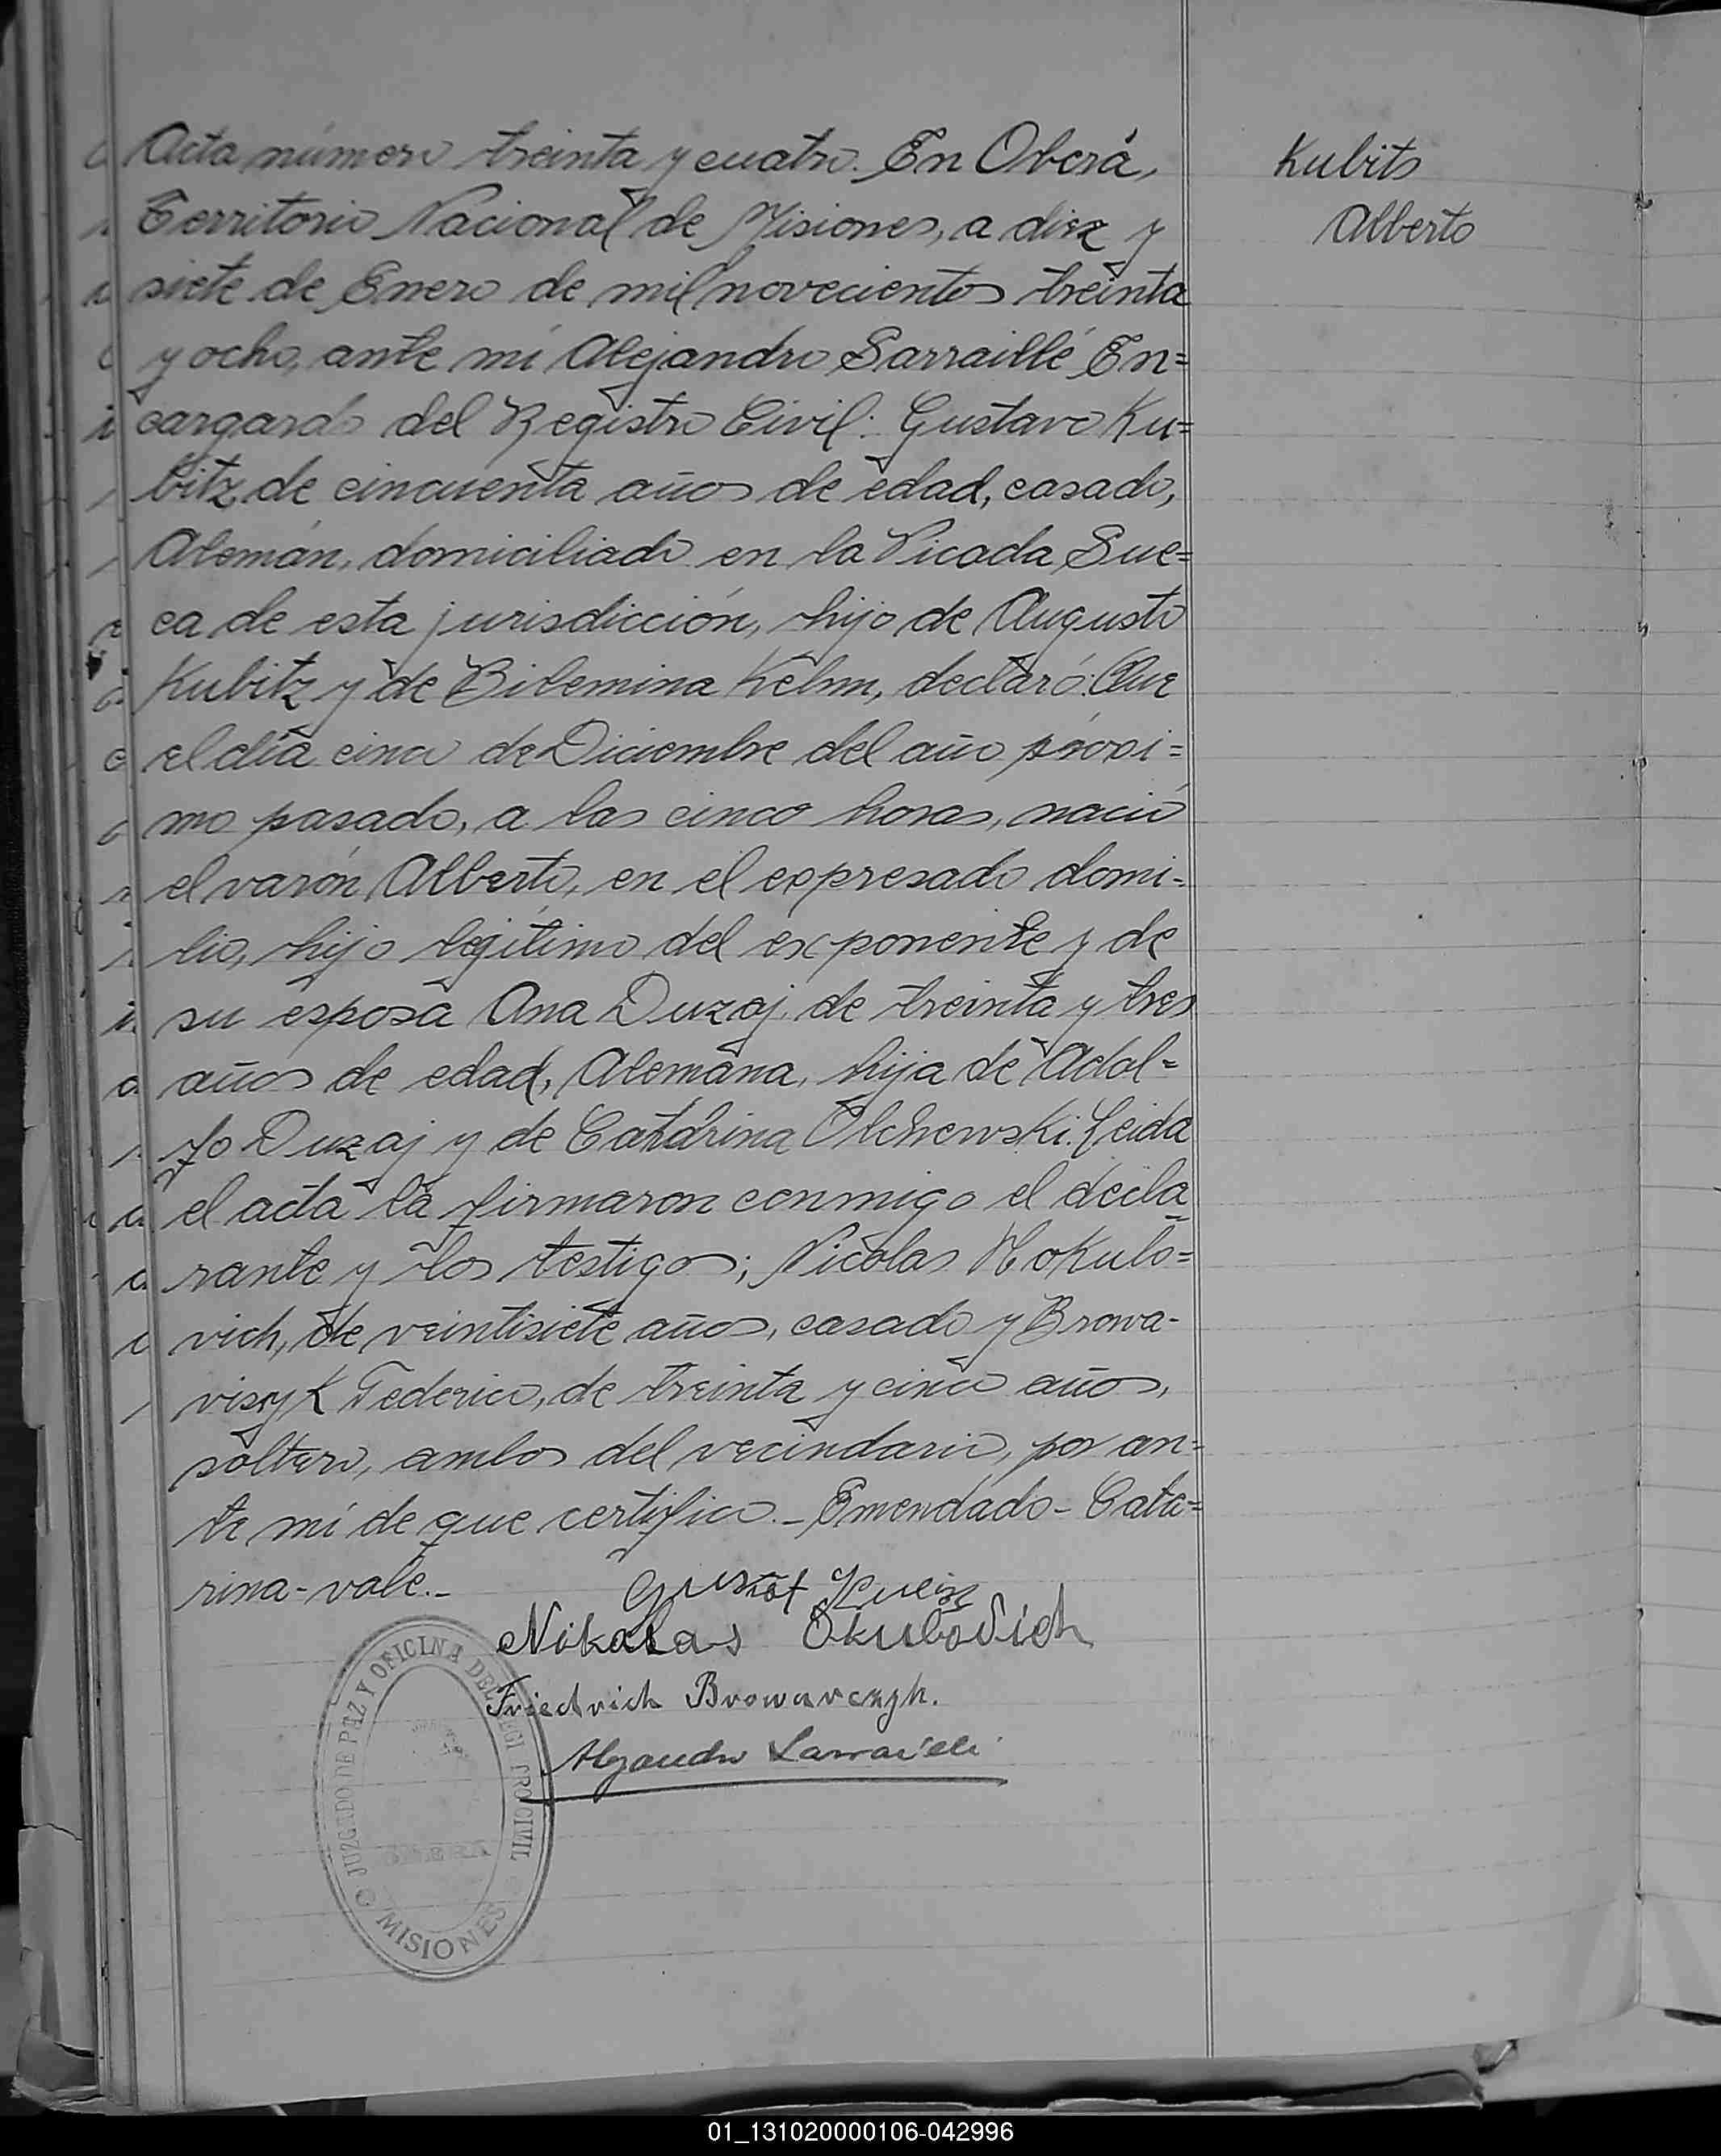 Acta número treinta y cuatro. En Oberá,
Territorio Nacional de Misiones, a diez y
siete de Enero de mil novecientos treinta
y ocho, ante mí Alejandro Sarraillé En=
cargardo del Registro Civil: Gustavo Ku=
bitz de cincuenta años de edad, casado,
Alemán, domiciliado en la Picada Sue=
ca de esta jurisdicción, hijo de Augusto
Kubitz y de Bilemina Kelm, declaró: Que
el día cinco de Diciembre del año próxi=
mo pasado, a las cinco horas, nació
el varón Alberto, en el expresado domi=
lio, hijo legítimo del exponente y de
su esposa Ana Duzaj, de treinta y tres
años de edad, Alemana, hija de Adol=
fo Duzaj y de Catarina Olchewski. Leida
el acta la firmaron conmigo el decla=
rante y los testigos; Nicolas Hokulo=
vich, de veintisiete años, casado y Browa-
visyk Federico, de treinta y cinco años,
soltero, ambos del vecindario, por an=
te mí de que certifico._ Emendado-Cata=
rina-vale._
Kubits
Alberto
Gustaf
Nikolas Okulovich
Friedrich Browarczyk.
Alejandro Sarraillé
JUZGADO DE PAZ Y OFICINA DEL REGISTRO CIVIL
OBERA
MISIONES
01_131020000106-042996